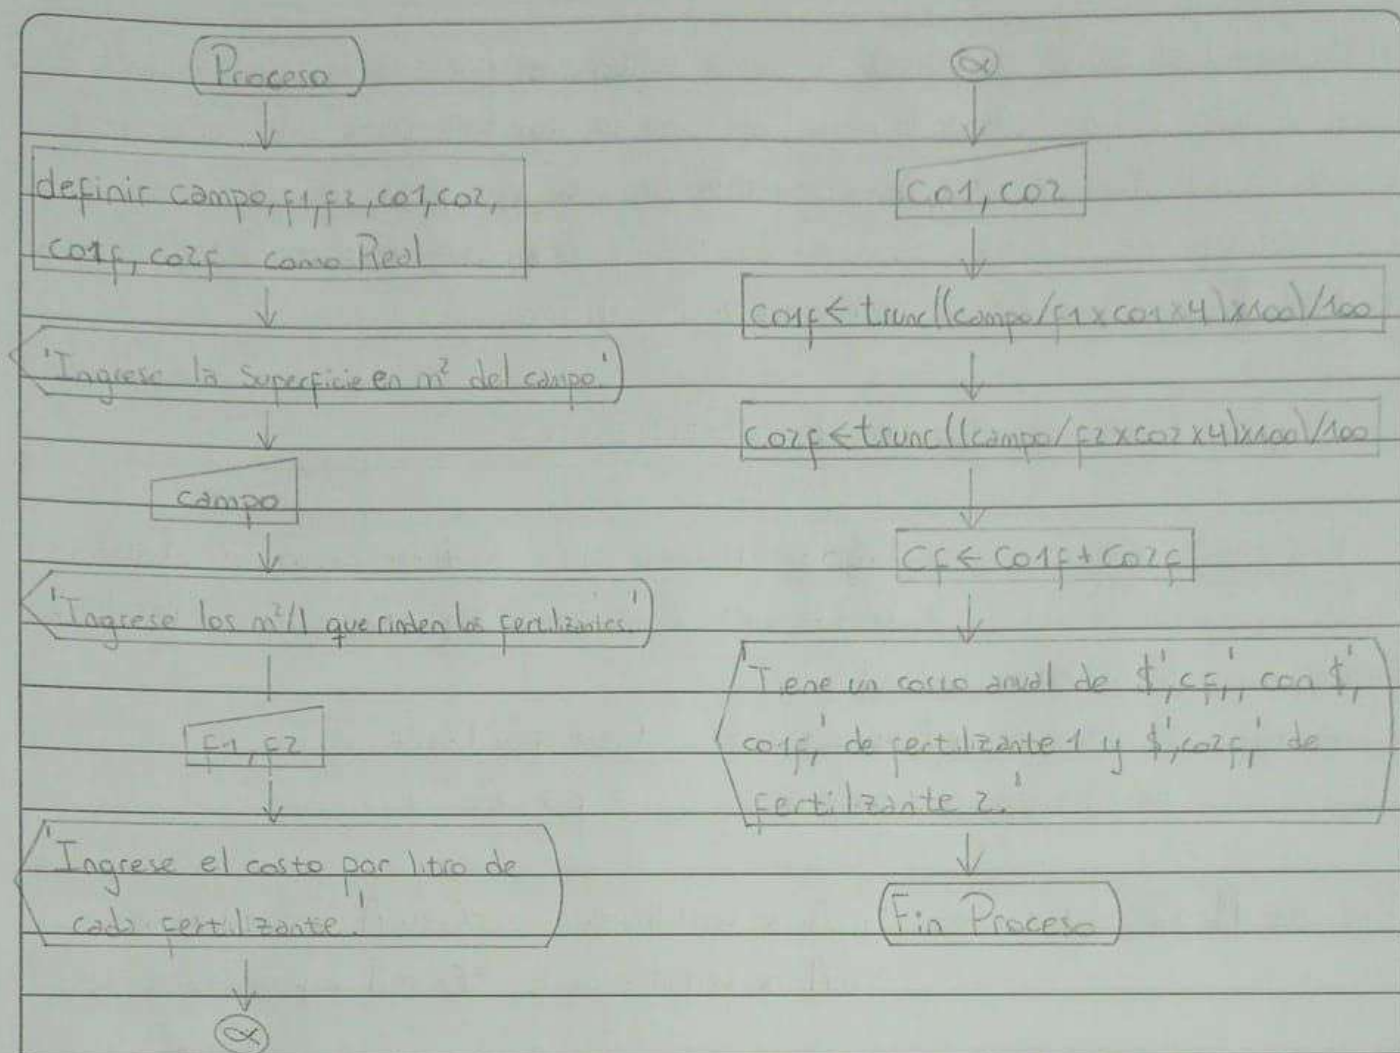 Proceso
definir campo, f1, f2, co1, co2,
co1f, co2f como Real
'Ingrese la superficie en m² del campo.'
campo
'Ingrese los m²/l que rinden los fertilizantes.'
f1, f2
'Ingrese el costo por litro de
cada fertilizante.'
α
α
co1, co2
co1f ← trunc((campo/f1xco1x4)x100)/100
co2f ← trunc((campo/f2xco2x4)x100)/100
cf ← co1f + co2f
'Tiene un costo anual de $', cf,', con $',
co1f,' de fertilizante 1 y $', co2f,' de
fertilizante 2.'
Fin Proceso